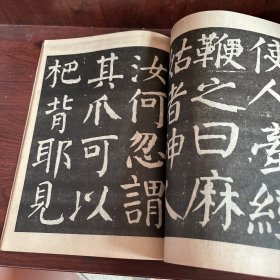 使人牽經
鞭之曰麻
姑者神人
汝何忽謂
其爪可以
杷背耶見